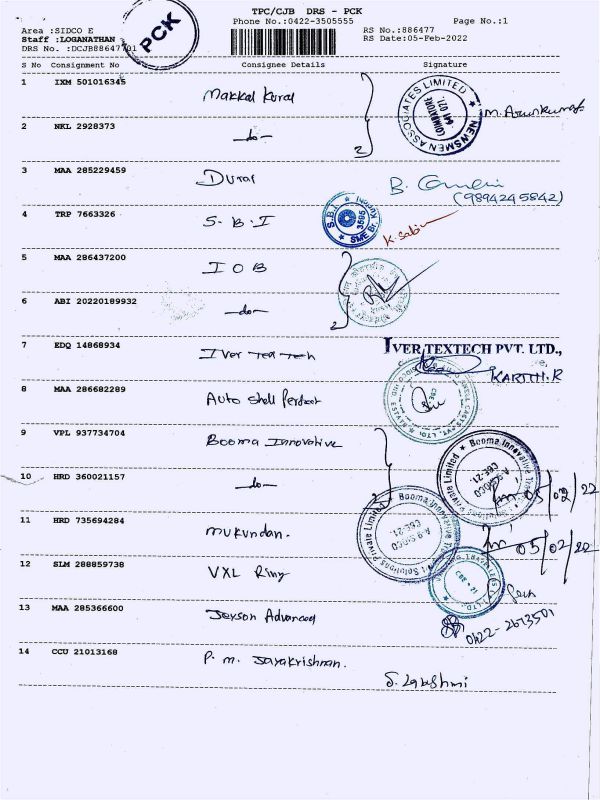 TPC/CJB DRS - PCK
Phone No.:0422-3505555 Page No.:1
Area :SIDCO E RS No.:886477
Staff :LOGANATHAN RS Date:05-Feb-2022
DRS No. :DCJB88647701
PCK
S No Consignment No Consignee Details Signature
1 IXM 501016345 Makkal Kural
NEWSMEN ASSOCIATES LIMITED
COIMBATORE
641 021
M. Arunkumar
2 NKL 2928373 -do- 2
3 MAA 285229459 Durai
(9894245842)
4 TRP 7663326 S.B.I
S.B.I. Kurichi
3585
SME Br.
K. Sabin
5 MAA 286437200 IOB
6 ABI 20220189932 -do- 2
7 EDQ 14868934 Iver Tex Tech
IVER TEXTECH PVT. LTD.,
KARTHI.R
8 MAA 286682289 Auto Shell
9 VPL 937734704 Booma Innovative
Booma Innovative Private Limited
CBE-21.
10 HRD 360021157 -do- 2
05/02/22
Booma Innovative Solutions Private Limited
A.G. SIDCO
CBE-21.
11 HRD 735694284 Mukundan.
05/02/22
12 SLM 288859738 VXL Ring
13 MAA 285366600 Jeyson Advanced
0422-2673501
14 CCU 21013168 P.M. Jayakrishnan.
S. Lakshmi